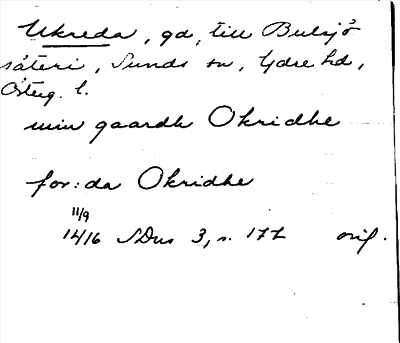 Ukreda, gd, till Bulsjö
säteri, Sunds sn, Ydre hd,
Östrg. l.
min gaardh Okridhe
for:da Okridhe
11/9
1416 SDns 3, s. 172 orig.